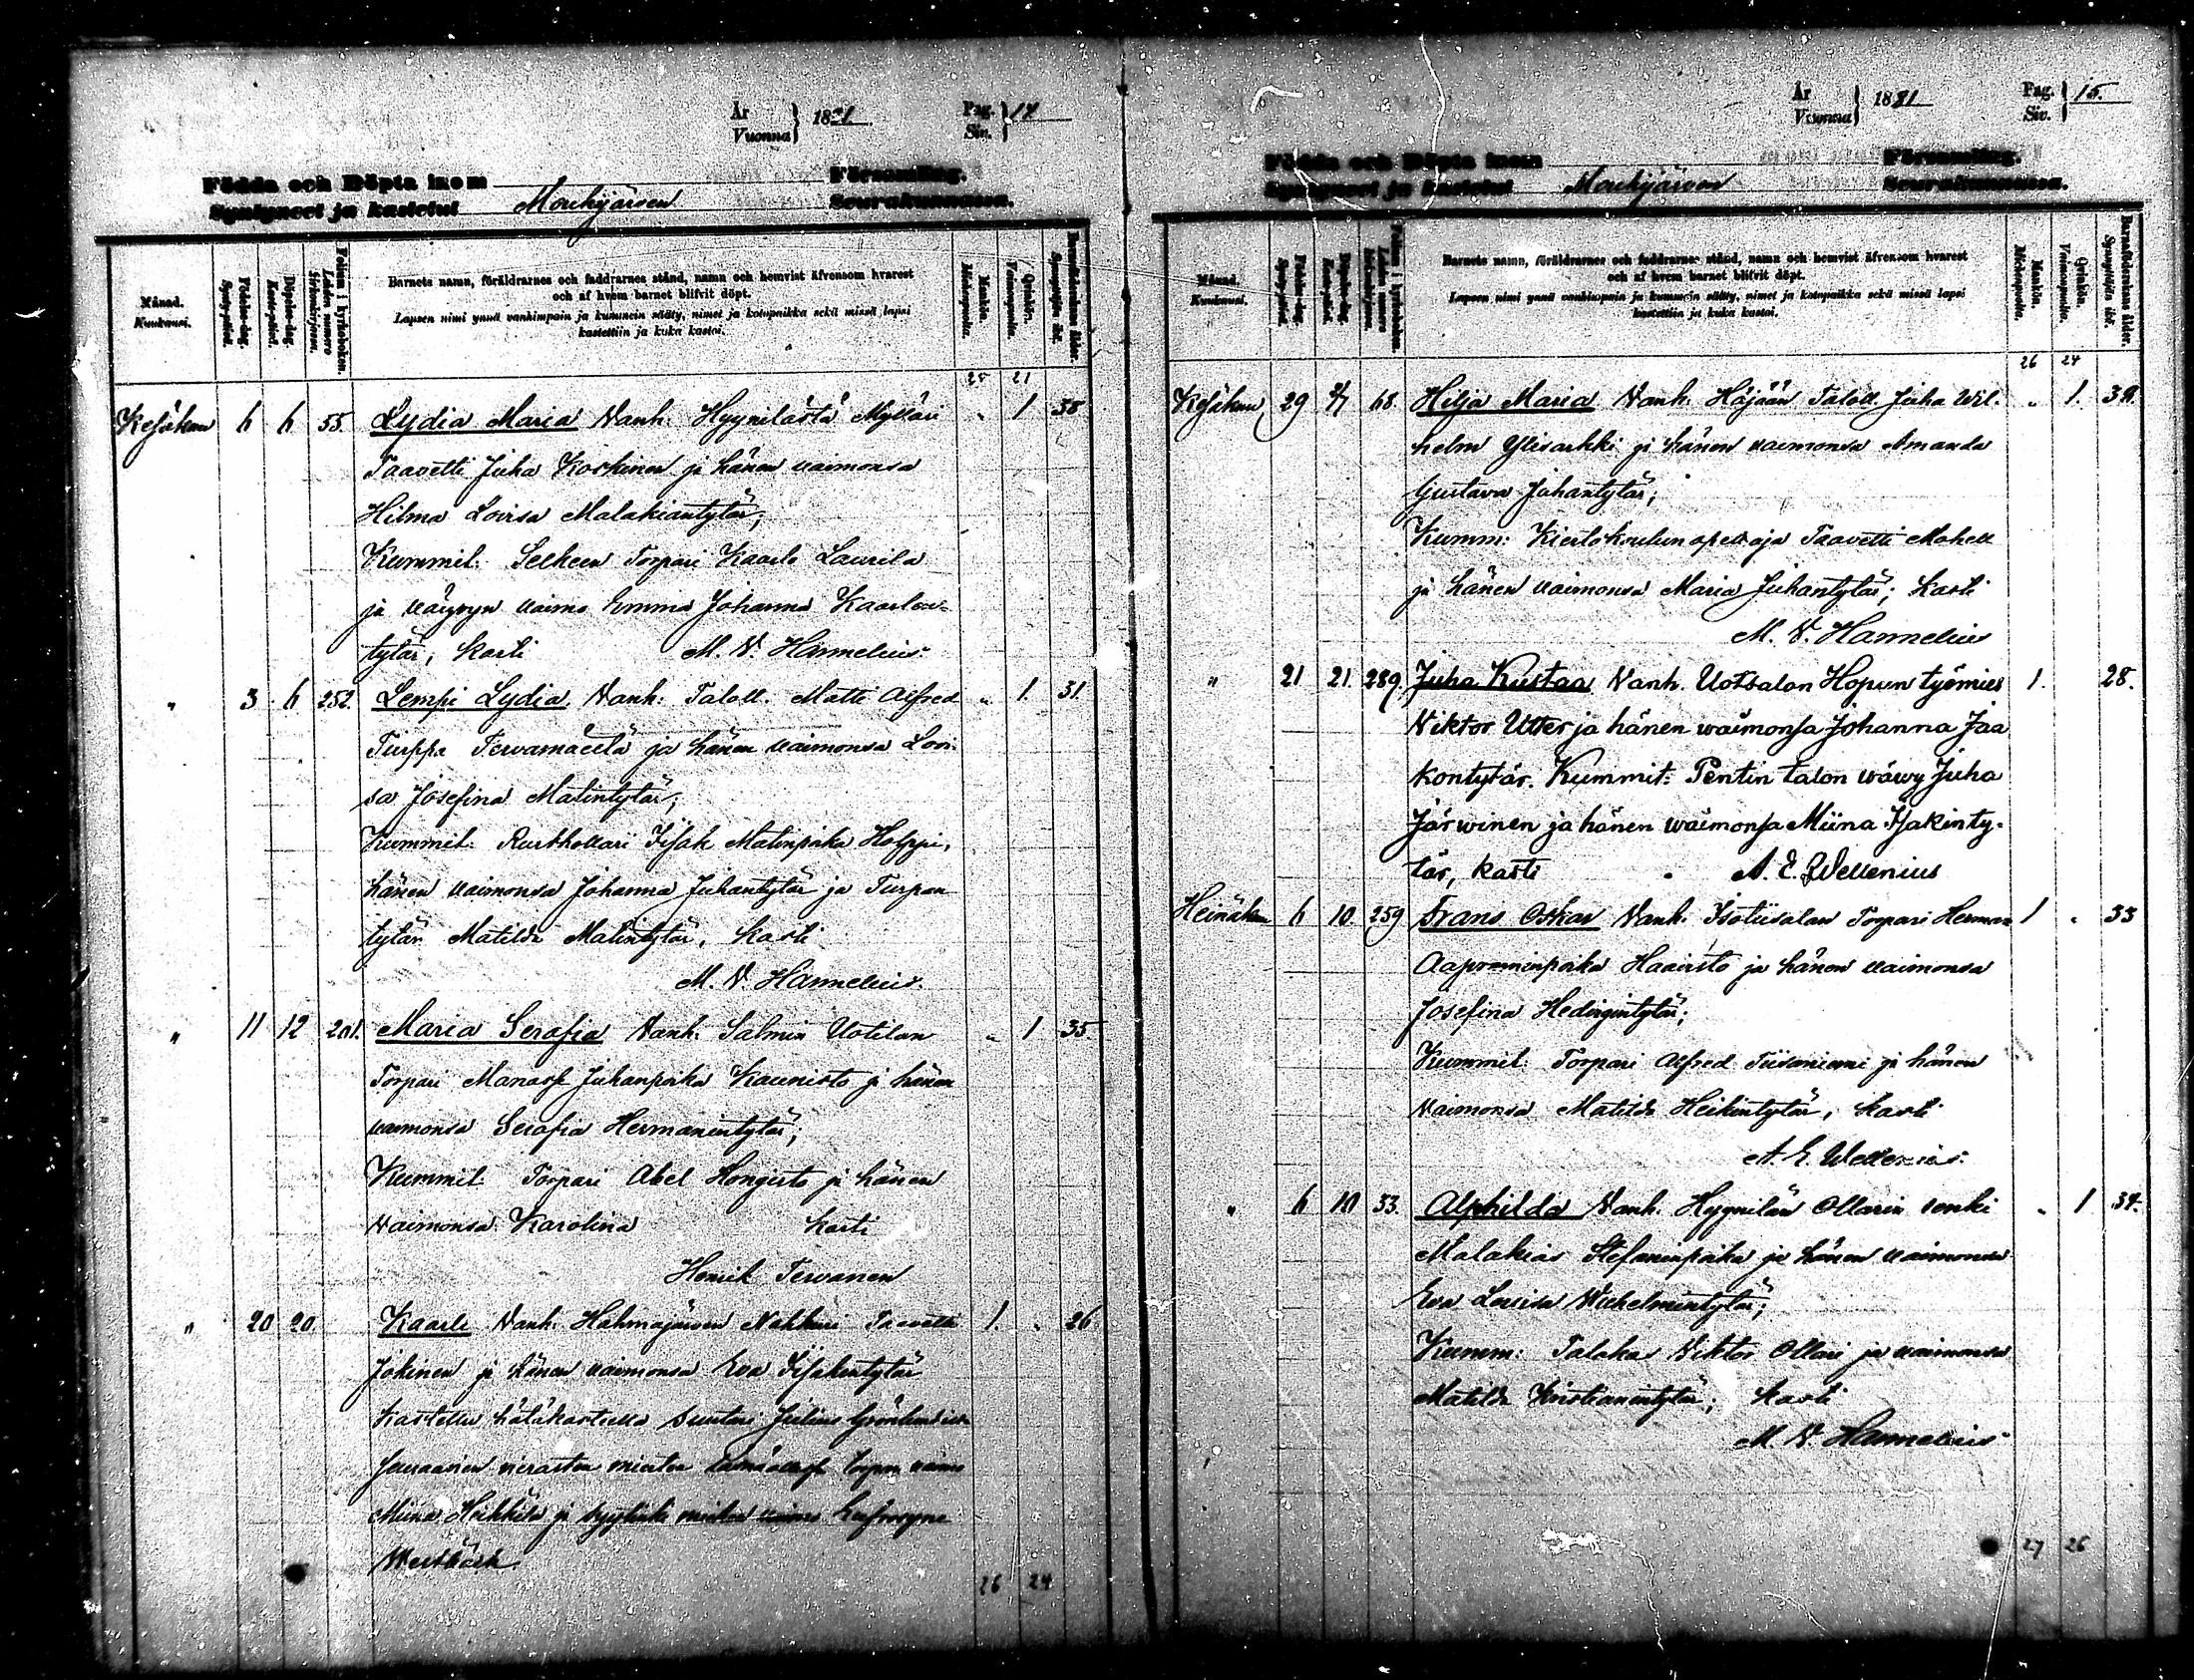 År Vuonna } 1881 Pag. Siv. } 14
Födda och Döpta inom Församling.
Syntyneet ja kastetut Mouhijärven Seurakunnassa.
Månad. Kuukausi.
Födelse-dag. Synty-päivä.
Döpelse-dag. Kaste-päivä.
Folium i kyrkoboken. Lehden numero kirkonkirjassa.
Barnets namn, föräldrarnes och faddrarnes stånd, namn och hemvist äfvensom hvarest
och af hvem barnet blifvit döpt.
Lapsen nimi ynnä vanhimpain ja kummein sääty, nimet ja kotopaikka sekä missä lapsi
kastettiin ja kuka kastoi.
Mankön. Miehenpuolia.
Qvinkön. Vaimonpuolia.
Barnaföderskans ålder. Synnyttäjän ikä.
25 21
Kesäkuu 6 6 55. Lydia Maria Vanh. Hyynilästä Mylläri „ 1 38
Taavetti Juha Koskinen ja hänen vaimonsa
Hilma Lovisa Malakiantytär;
Kummit: Selkeen Torpari Kaarlo Laurila
ja vävyn vaimo Emma Johanna Kaarlon-
tytär; kasti M. V. Hannelius.
„ 3 6 252. Lempi Lydia Vanh: Taloll. Matti Alfred „ 1. 31.
Turppa Tervamäeltä ja hänen vaimonsa Lovi-
sa Josefina Matintytär;
Kummit: Rusthollari Iisak Matinpoika Holppi,
hänen vaimonsa Johanna Juhantytär ja Turpan
tytär Matilda Matintytär, kasti
M. V. Hannelius.
„ 11 12 201. Maria Serafia Vanh. Salmin Uotilan „ 1 35.
Torpari Manasse Juhanpoika Kaunisto ja hänen
vaimonsa Serafia Hermanintytär;
Kummit: Torpari Abel Hongisto ja hänen
vaimonsa Karolina kasti
Henrik Tervanen
„ 20 20. Kaarle Vanh. Hahmajärven Nahkuri Taavetti 1. „ 26
Jokinen ja hänen vaimonsa Eva Iisakintytär
Kastettu hätäkasteella Suutari Julius
Miina Heikkilä ja
Westbäck.
26 24
År Vuonna } 1881 Pag. Siv. } 15.
Födda och Döpta inom Församling.
Syntyneet ja kastetut Mouhijärven Seurakunnassa.
Månad. Kuukausi.
Födelse-dag. Synty-päivä.
Döpelse-dag. Kaste-päivä.
Folium i kyrkoboken. Lehden numero kirkonkirjassa.
Barnets namn, föräldrarnes och faddrarnes stånd, namn och hemvist äfvensom hvarest
och af hvem barnet blifvit döpt.
Lapsen nimi ynnä vanhimpain ja kummein sääty, nimet ja kotopaikka sekä missä lapsi
kastettiin ja kuka kastoi.
Mankön. Miehenpuolia.
Qvinkön. Vaimonpuolia.
Barnaföderskans ålder. Synnyttäjän ikä.
26 24
Kesäkuu 29 68. Hilja Maria Vanh. Häijään Taloll. Juha Wil- „ 1. 39.
helm Ylisarkki ja hänen vaimonsa Amanda
Gustava Juhantytär;
Kumm: Kiertokoulun opettaja Taavetti Mahell
ja hänen vaimonsa Maria Juhantytär; kasti
M. V. Hannelius
„ 21 21. 289. Juha Kustaa Vanh. Uotsalan Hopun työmies 1. 28.
Viktor Utter ja hänen waimonsa Johanna Jaa
kontytär. Kummit: Pentin talon wäwy Juha
Järwinen ja hänen waimonsa Miina Isakinty-
tär, kasti A. E. Wellenius
Heinäkuu 6 10. 259 Frans Oskar Vanh. Isotiisalan Torpari Herman 1 „ 33
Aaprominpoika Haavisto ja hänen vaimonsa
Josefina Hedvigintytär;
Kummit: Torpari Alfred Tiisaniemi ja hänen
vaimonsa Matilda Heikintytär; kasti
A. E. Wellenius.
„ 6 10 33. Alphilda Vanh. Hyynilän Ollarin renki „ 1 34.
Malakias Stefaninpoika ja hänen vaimonsa
Eva Lovisa Wilhelmintytär;
Kumm: Talokas Viktor Ollari ja vaimonsa
Matilda Kristianintytär; kasti
M. V. Hannelius
27 26